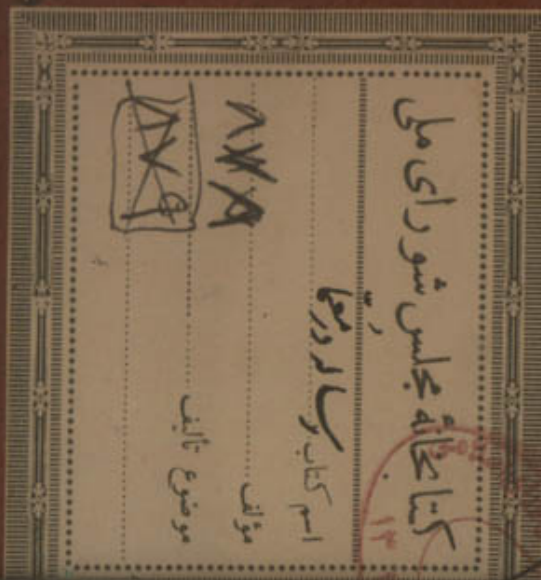 کتابخانهٔ مجلس شورای ملی
اسم کتاب رساله در معما
مؤلف
موضوع تألیف
۸۷۹
۱۳